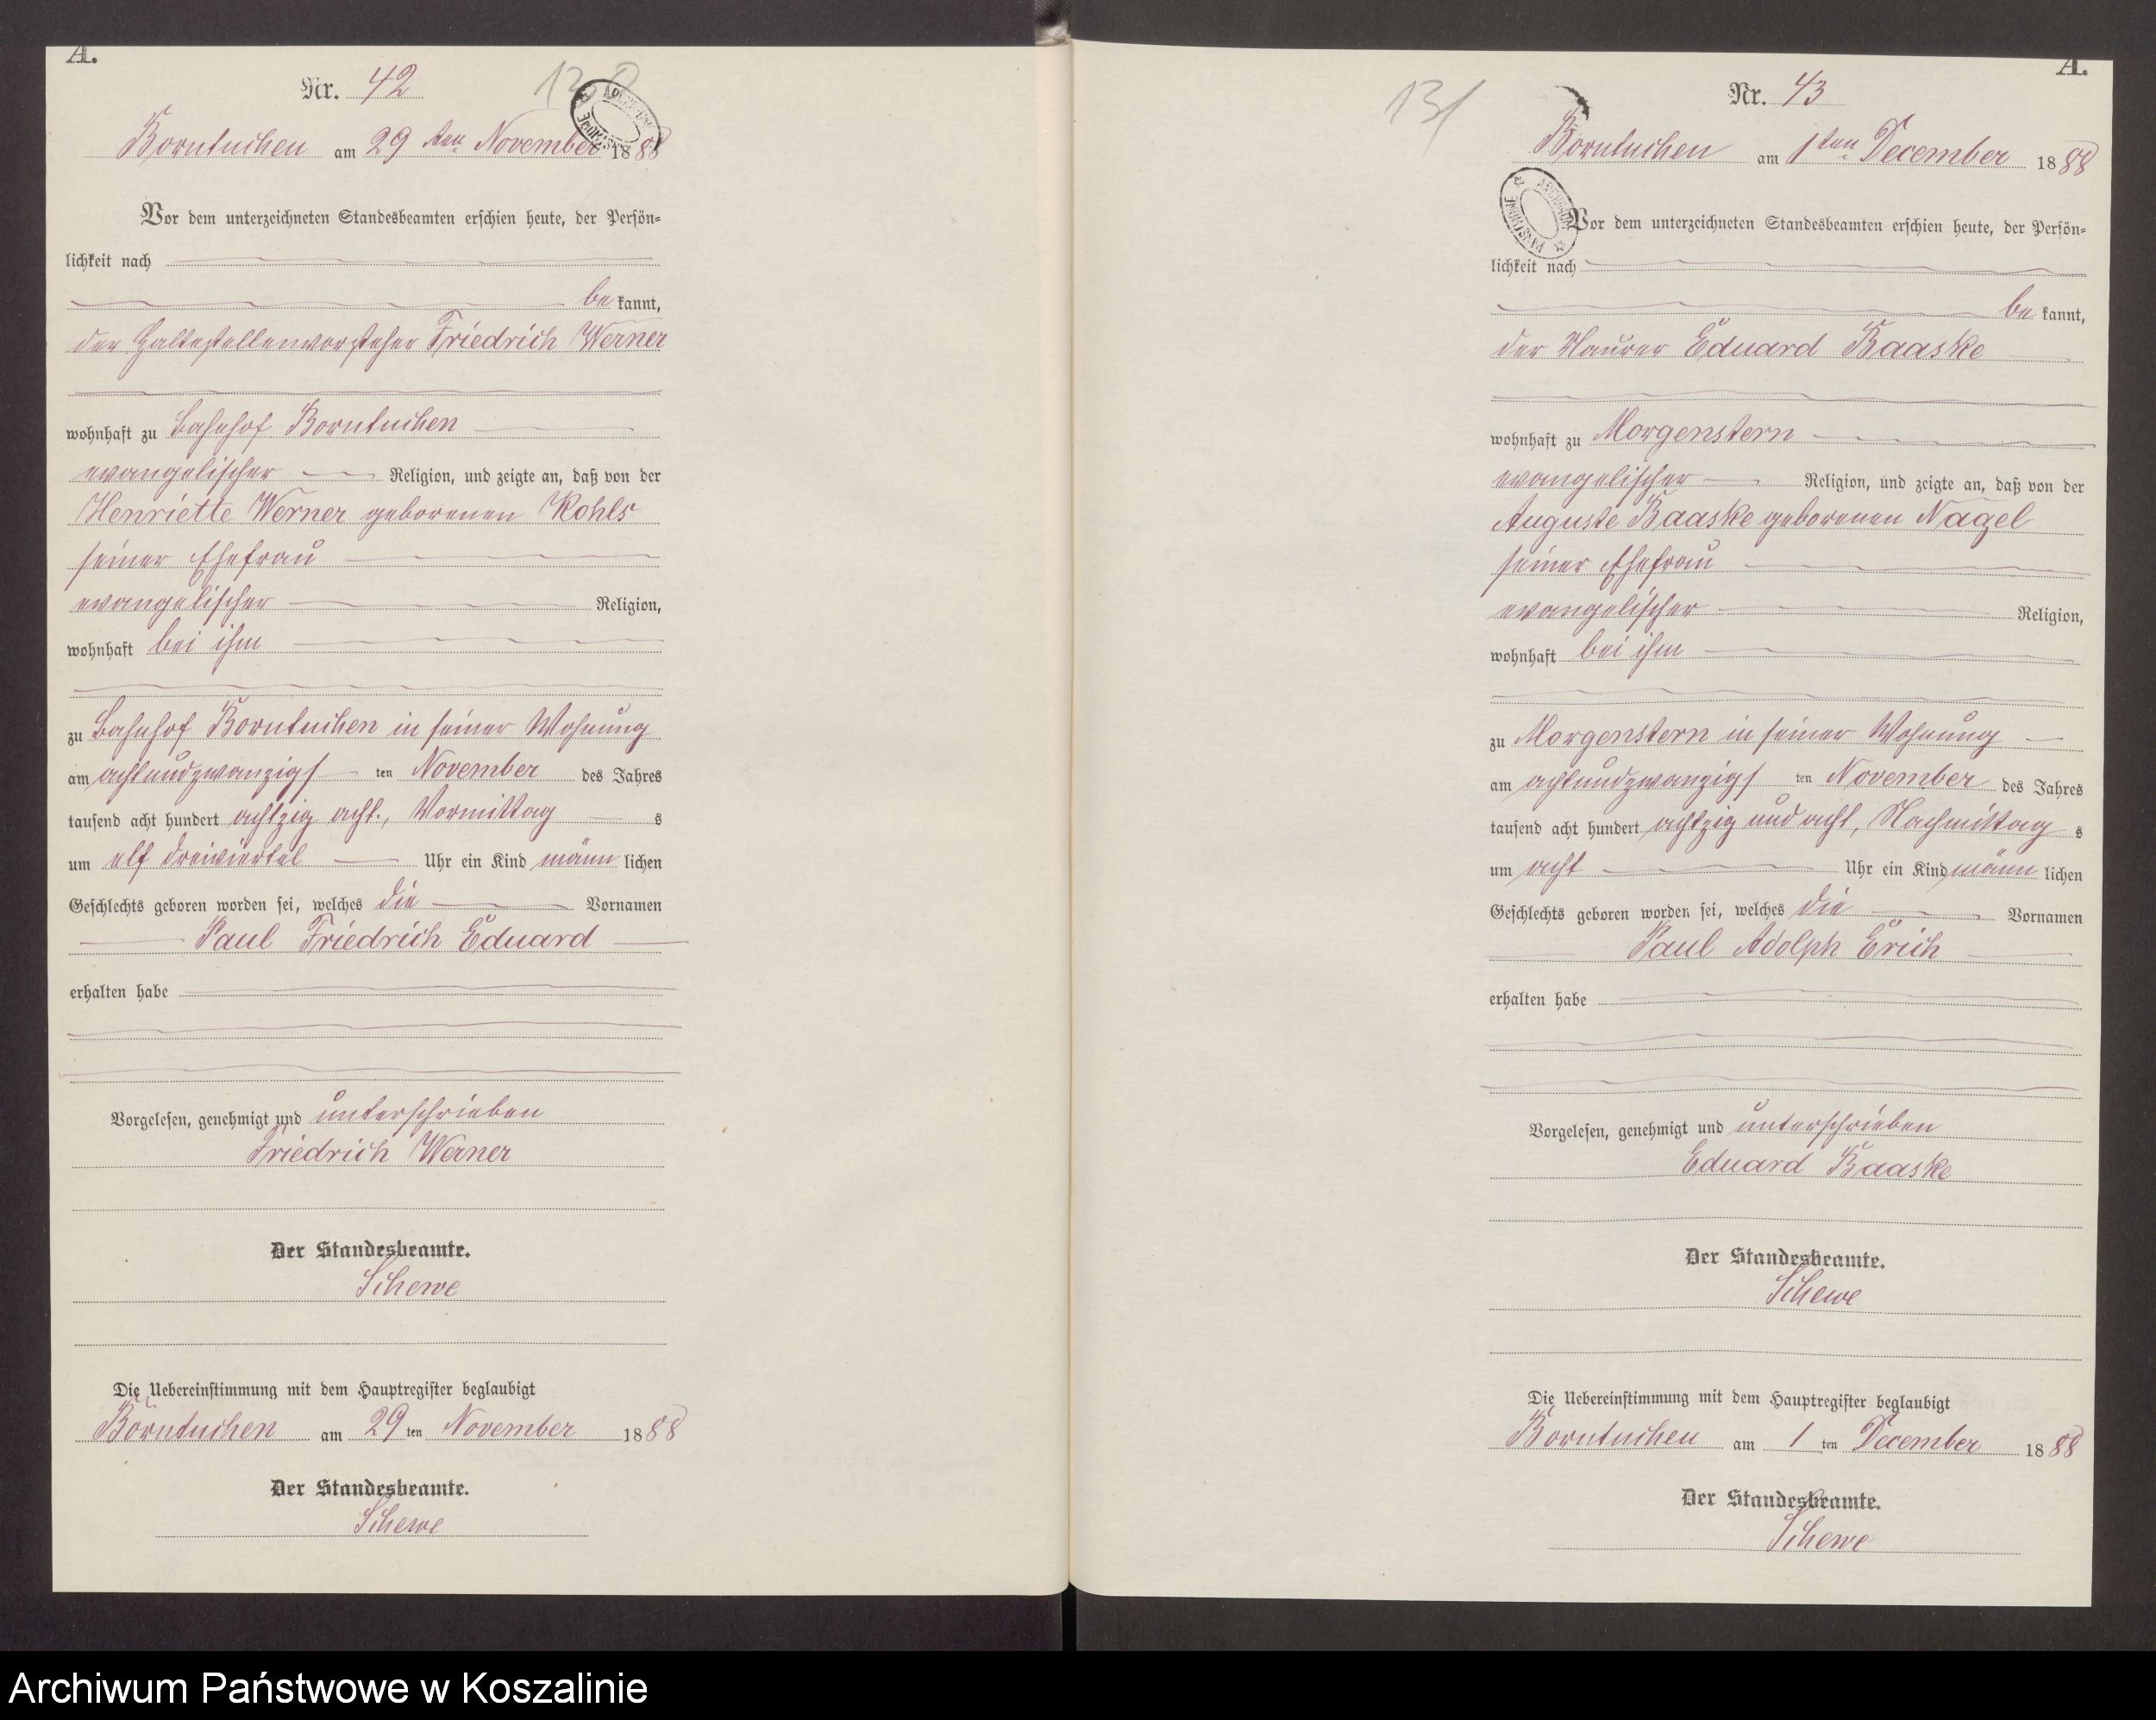 A.
Nr. 42
130
Borntuchen am 29 ten November 1888
Vor dem unterzeichneten Standesbeamten erschien heute, der Persön-
lichkeit nach
be kannt,
der Haltestellenvorsteher Friedrich Werner
wohnhaft zu Bahnhof Borntuchen
evangelischer Religion, und zeigte an, daß von der
Henriette Werner geborenen Kohls
seiner Ehefrau
evangelischer Religion,
wohnhaft bei ihm
zu Bahnhof Borntuchen in seiner Wohnung
am achtundzwanzigs ten November des Jahres
tausend acht hundert achtzig acht, Vormittag s
um elf dreiviertel Uhr ein Kind männ lichen
Geschlechts geboren worden sei, welches die Vornamen
Paul Friedrich Eduard
erhalten habe
Vorgelesen, genehmigt und unterschrieben
Friedrich Werner
Der Standesbeamte.
Schewe
Die Uebereinstimmung mit dem Hauptregister beglaubigt
Borntuchen am 29 ten November 1888
Der Standesbeamte.
Schewe
A.
131
Nr. 43
Borntuchen am 1 ten December 1888
Vor dem unterzeichneten Standesbeamten erschien heute, der Persön-
lichkeit nach
be kannt,
der Maurer Eduard Baaske
wohnhaft zu Morgenstern
evangelischer Religion, und zeigte an, daß von der
Auguste Baaske geborenen Nagel
seiner Ehefrau
evangelischer Religion,
wohnhaft bei ihm
zu Morgenstern in seiner Wohnung
am achtundzwanzigs ten November des Jahres
tausend acht hundert achtzig und acht, Nachmittag s
um acht Uhr ein Kind männ lichen
Geschlechts geboren worden sei, welches die Vornamen
Paul Adolph Erich
erhalten habe
Vorgelesen, genehmigt und unterschrieben
Eduard Baaske
Der Standesbeamte.
Schewe
Die Uebereinstimmung mit dem Hauptregister beglaubigt
Borntuchen am 1 ten December 1888
Der Standesbeamte.
Schewe
Archiwum Państwowe w Koszalinie